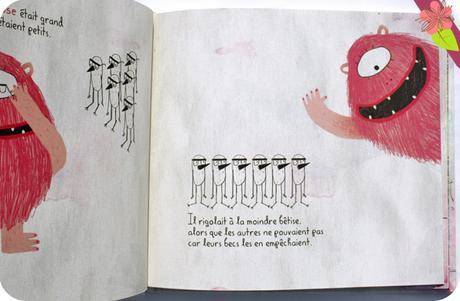 ise était grand
étaient petits.
Il rigolait à la moindre bêtise,
alors que les autres ne pouvaient pas
car leurs becs les en empêchaient.